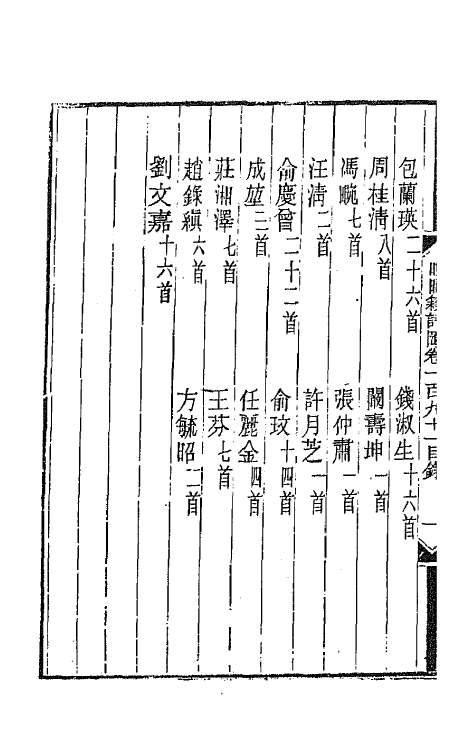 晚晴簃詩匯卷一百九十一目錄 一
包蘭瑛二十六首 錢淑生十六首
周桂清八首 關壽坤一首
馮畹七首 張仲肅一首
汪清二首 許月芝一首
俞慶曾二十二首 俞玟十四首
成堃二首 任麗金四首
莊湘澤七首 王芬七首
趙錄縝六首 方毓昭二首
劉文嘉十六首